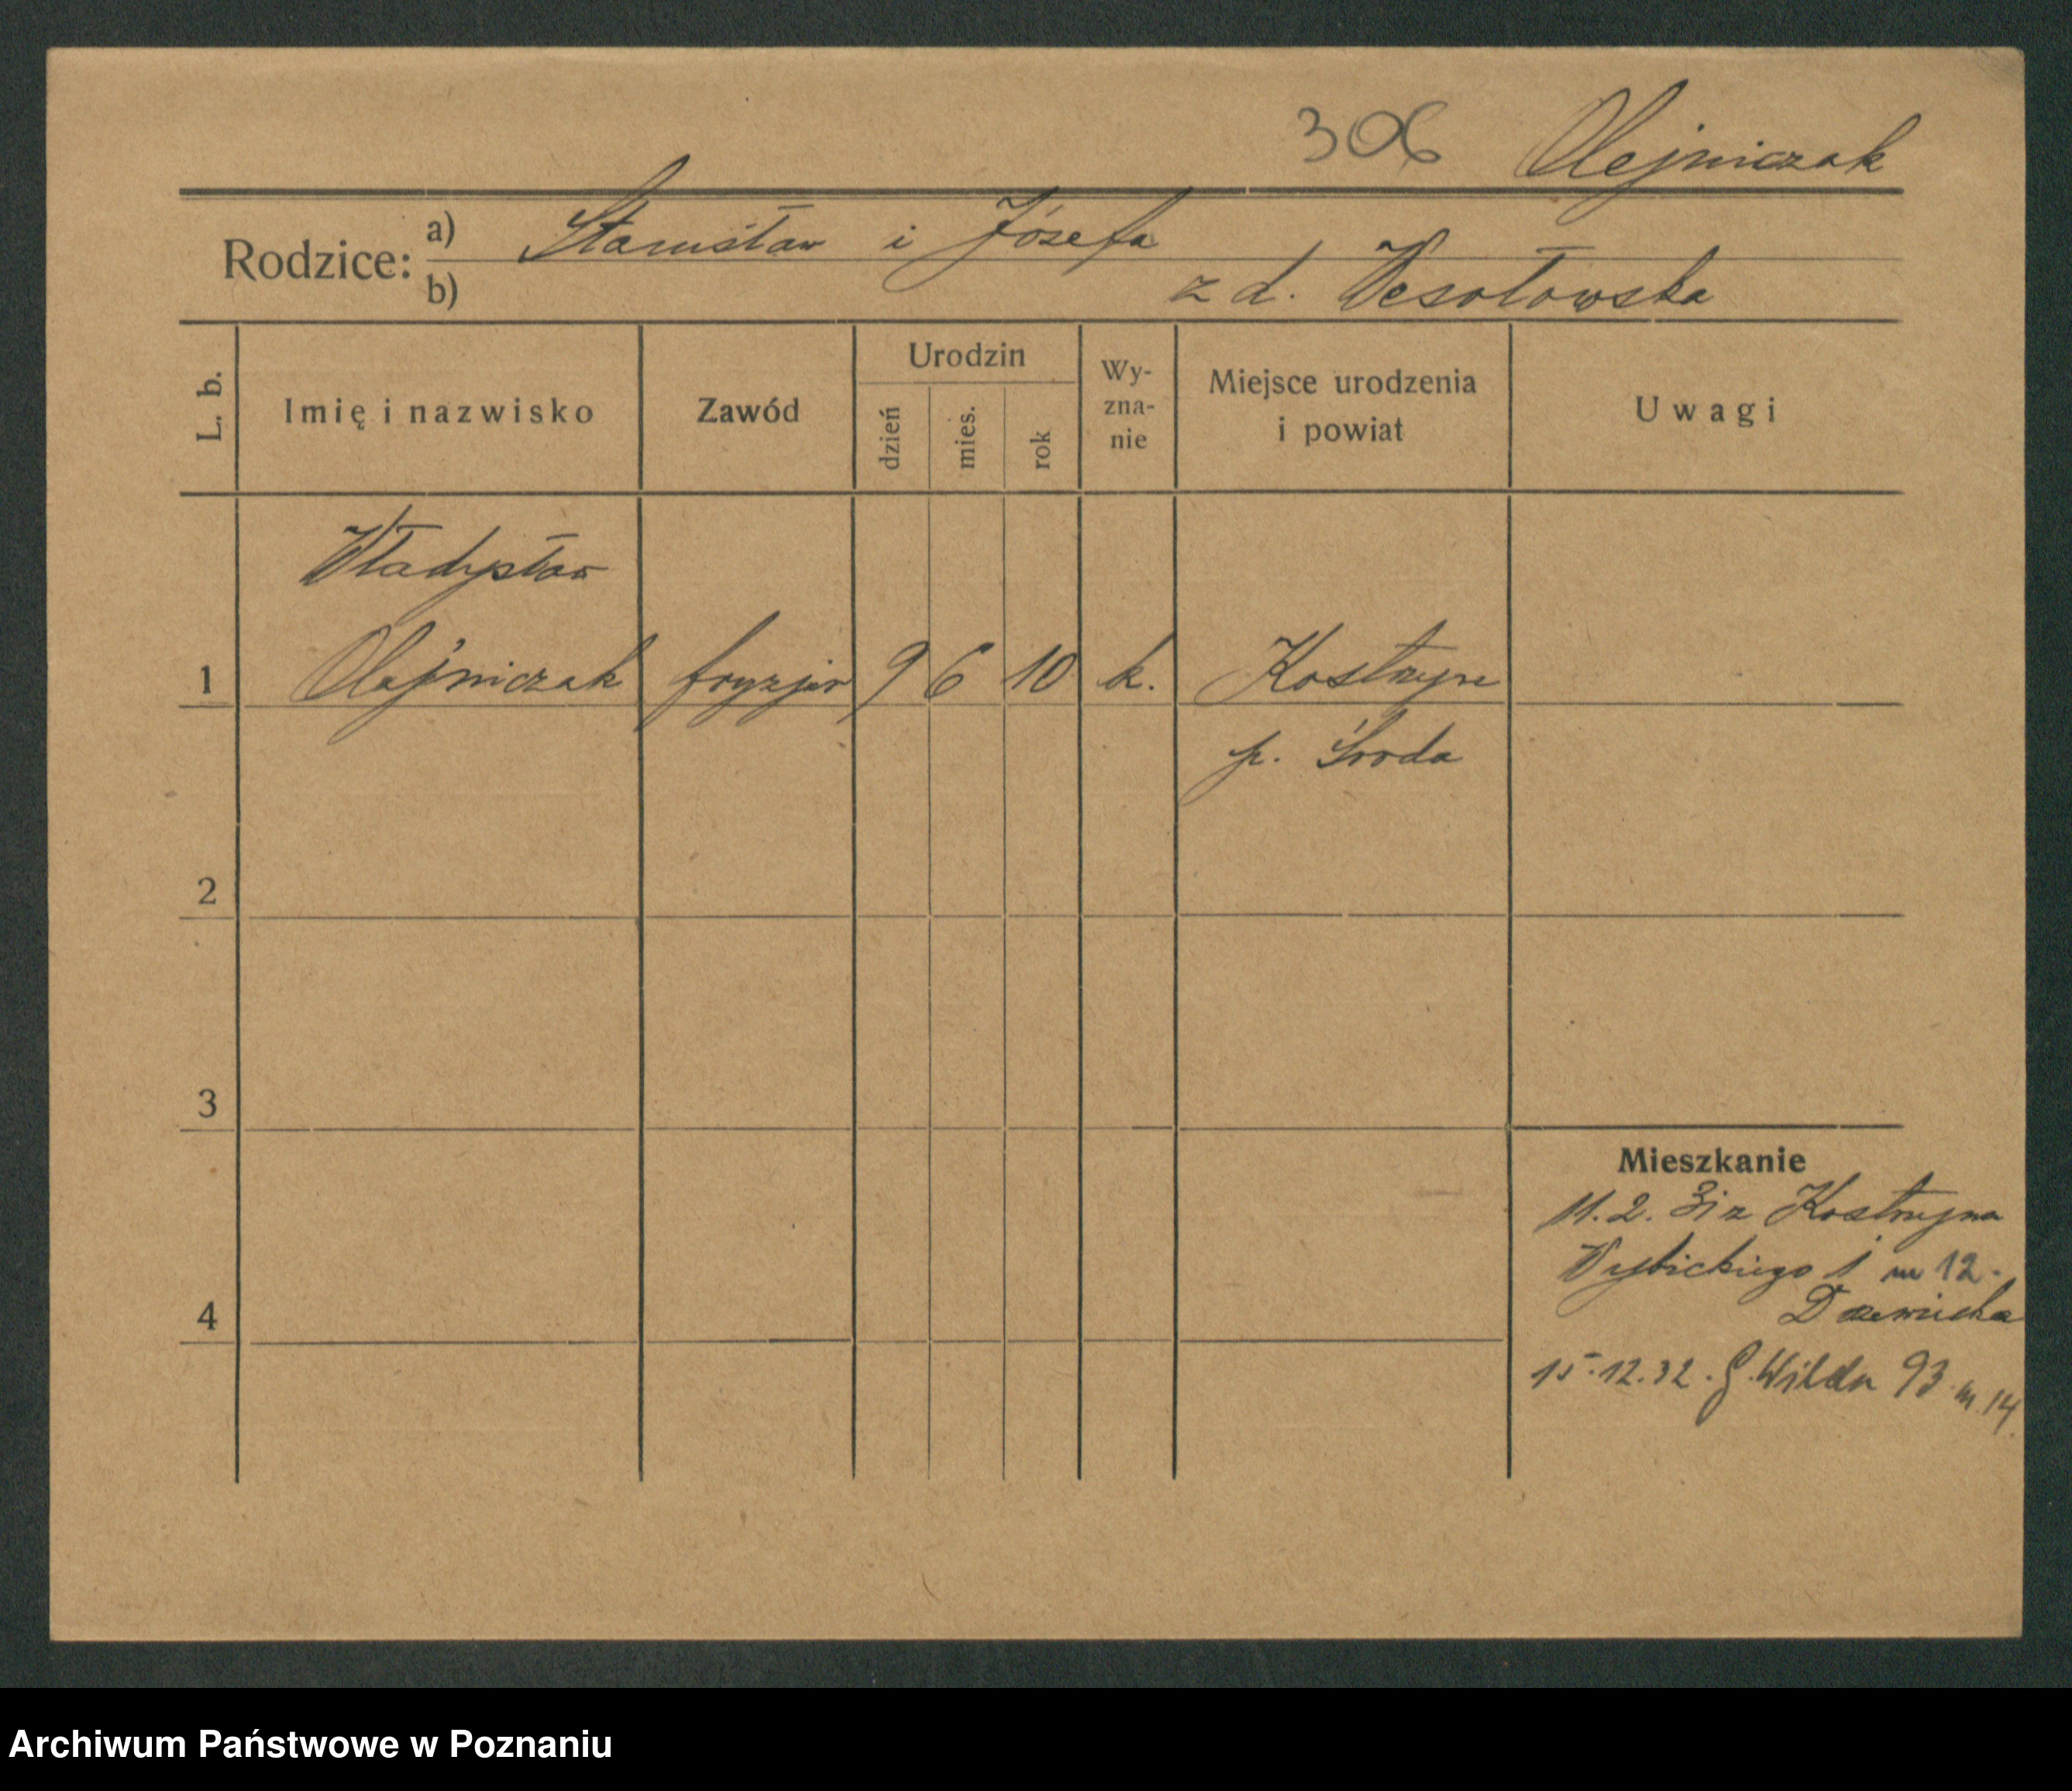 306 Olejniczak
Rodzice: a) Stanisław i Józefa
b) z d. Wesołowska
L. b.
Imię i nazwisko
Zawód
Urodzin
dzień
mies.
rok
Wy-
zna-
nie
Miejsce urodzenia
i powiat
Uwagi
Władysław
1 Olejniczak fryzjer 9 6 10 k. Kostrzyn
p. Środa
2
3
4
Mieszkanie
11.2. 31 z Kostrzyna
Wybickiego 1 m 12.
15.12.32. G. Wilda 93 m. 14
Archiwum Państwowe w Poznaniu